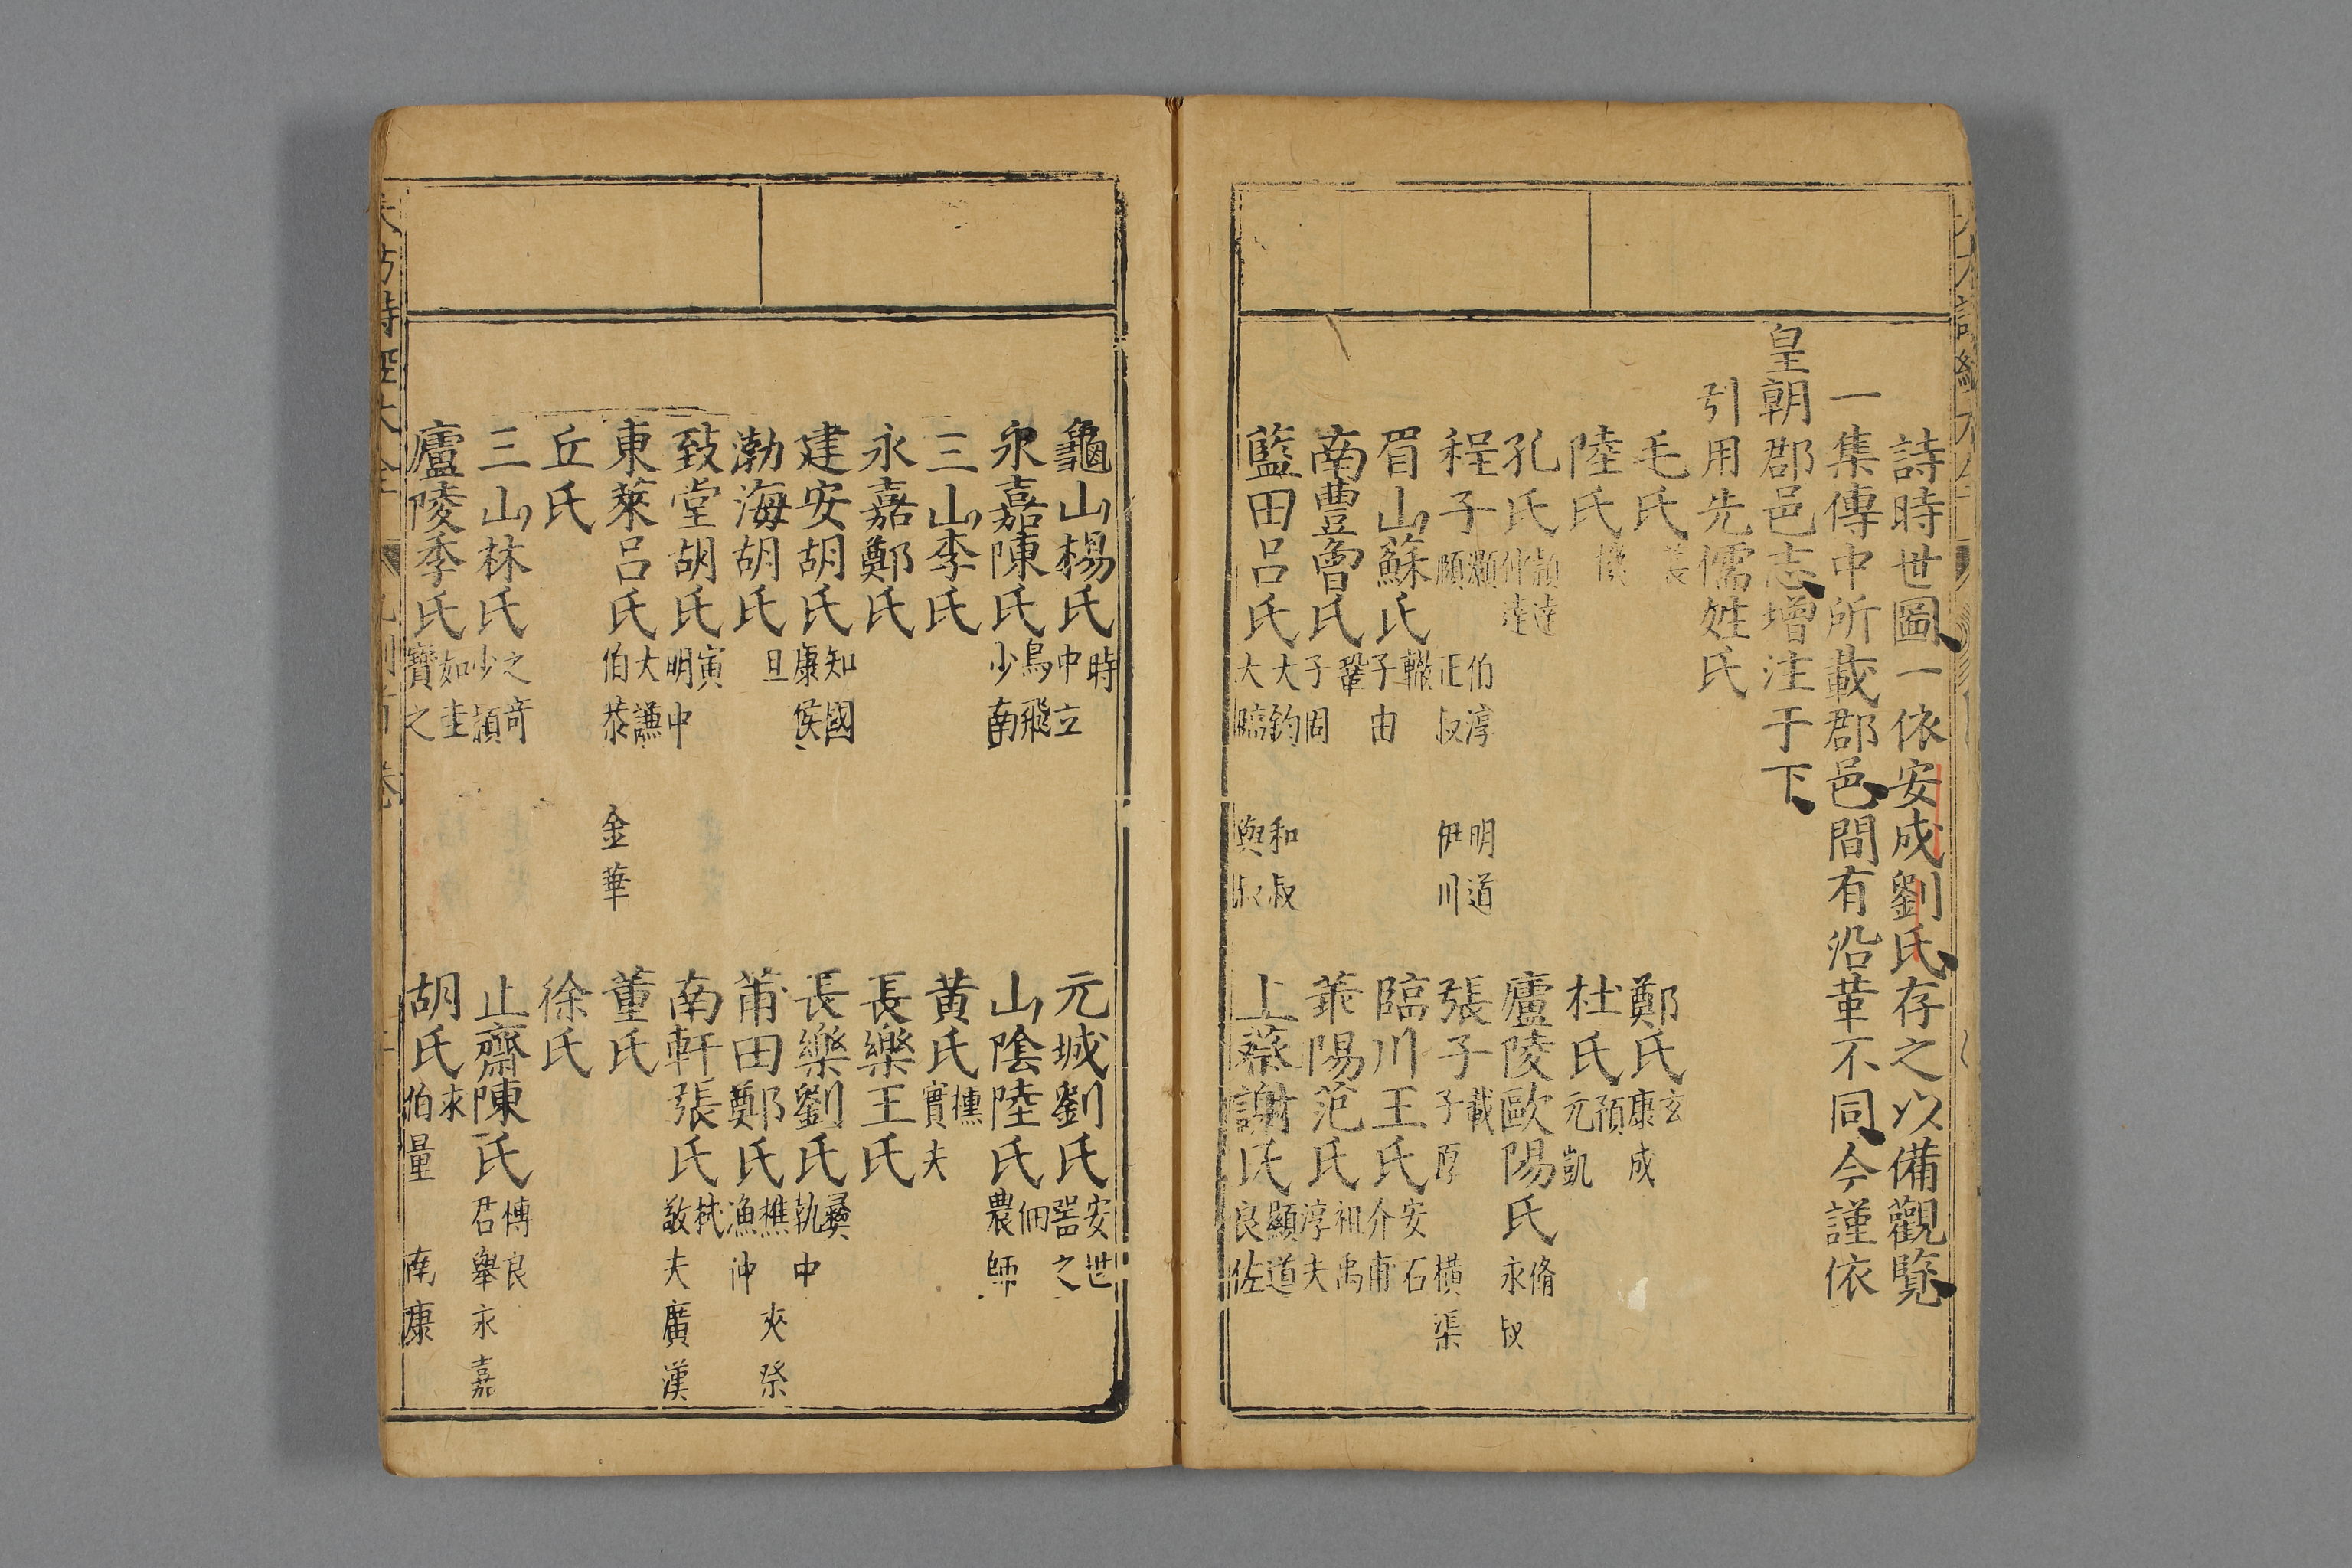 詩時世圖一依安成劉氏存之以備觀覽
一集傳中所載郡邑間有沿革不同今謹依
皇朝郡邑志增注于下
引用先儒姓氏
毛氏萇 鄭氏玄康成
陸氏璣 杜氏預元凱
孔氏穎達仲達 廬陵歐陽氏脩永叔
程子灝頤 伯淳正叔 明道伊川 張子載子厚 橫渠
眉山蘇氏轍子由 臨川王氏安石介甫
南豊曾氏鞏子固 華陽范氏祖禹淳夫
藍田呂氏大鈞大臨 和叔與叔 上蔡謝氏顯道良佐
龜山楊氏時中立 元城劉氏安世器之
永嘉陳氏鳥飛少南 山陰陸氏佃農師
三山李氏 黄氏櫄實夫
永嘉鄭氏 長樂王氏
建安胡氏知國康侯 長樂劉氏彝執中
渤海胡氏旦 莆田鄭氏樵漁仲 夾祭
致堂胡氏寅明中 南軒張氏栻敬夫 廣漢
東萊呂氏大謙伯恭 金華 董氏
丘氏 徐氏
三山林氏之奇少頴 止齋陳氏傅良君舉 永嘉
廬陵李氏如圭寶之 胡氏求伯量 南康